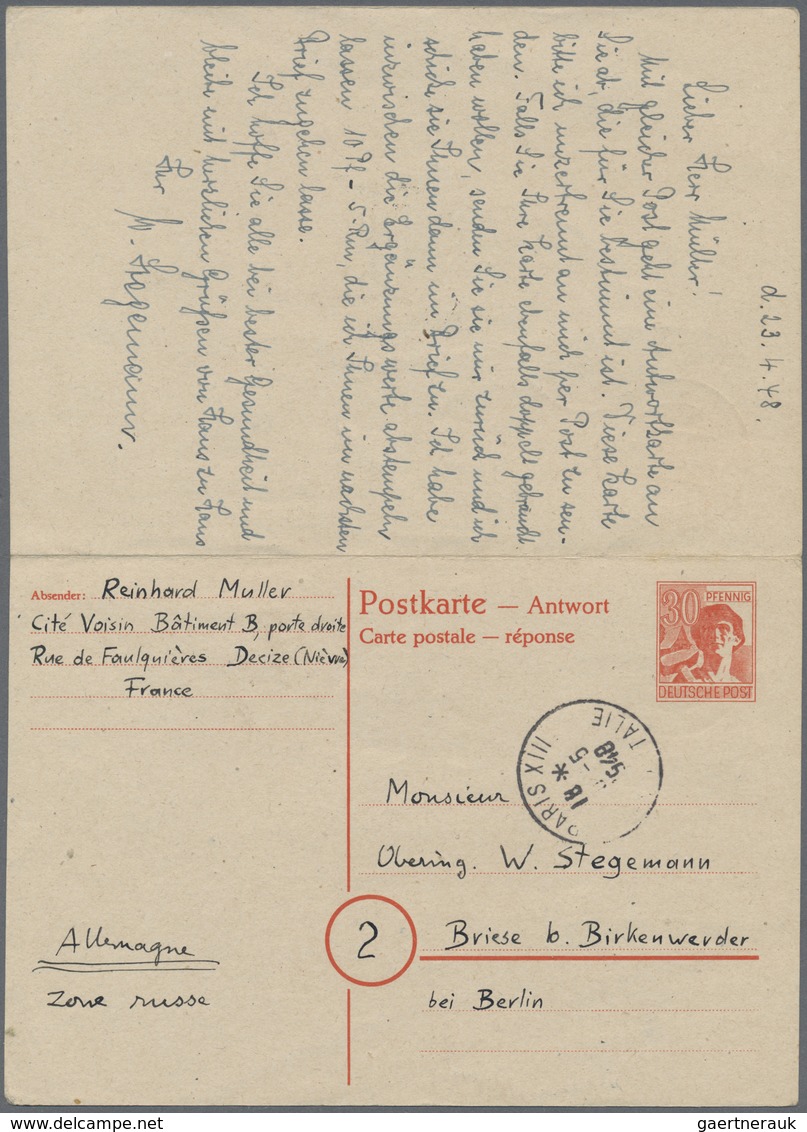 d. 23. 4. 48.
Lieber Herr Müller!
Mit gleicher Post geht eine Antwortkarte an
Sie ab, die für Sie bestimmt ist. Diese Karte
bitte ich unzertrennt an mich per Post zu sen-
den. Falls Sie Ihre Karte ebenfalls doppelt gebraucht
haben wollen, senden Sie sie mir zurück und ich
schicke sie Ihnen dann im Brief zu. Ich habe
inzwischen die Ergänzungswerte abstempeln
lassen 10 Pf - 5 Rm, die ich Ihnen im nächsten
Brief zugehen lasse.
Ich hoffe Sie alle bei bester Gesundheit und
bleibe mit herzlichen Grüßen von Haus zu Haus
Ihr W. Stegemann.
Absender: Reinhard Muller
Cité Voisin Bâtiment B, porte droite
Rue de Faulquières Decize (Nièvre)
France
Postkarte — Antwort
Carte postale — réponse
30 PFENNIG
DEUTSCHE POST
PARIS XIII
18 *
- 5
TALIE
Monsieur
Obering. W. Stegemann
2
Briese b. Birkenwerder
bei Berlin
Allemagne
Zone russe
gaertnerauk